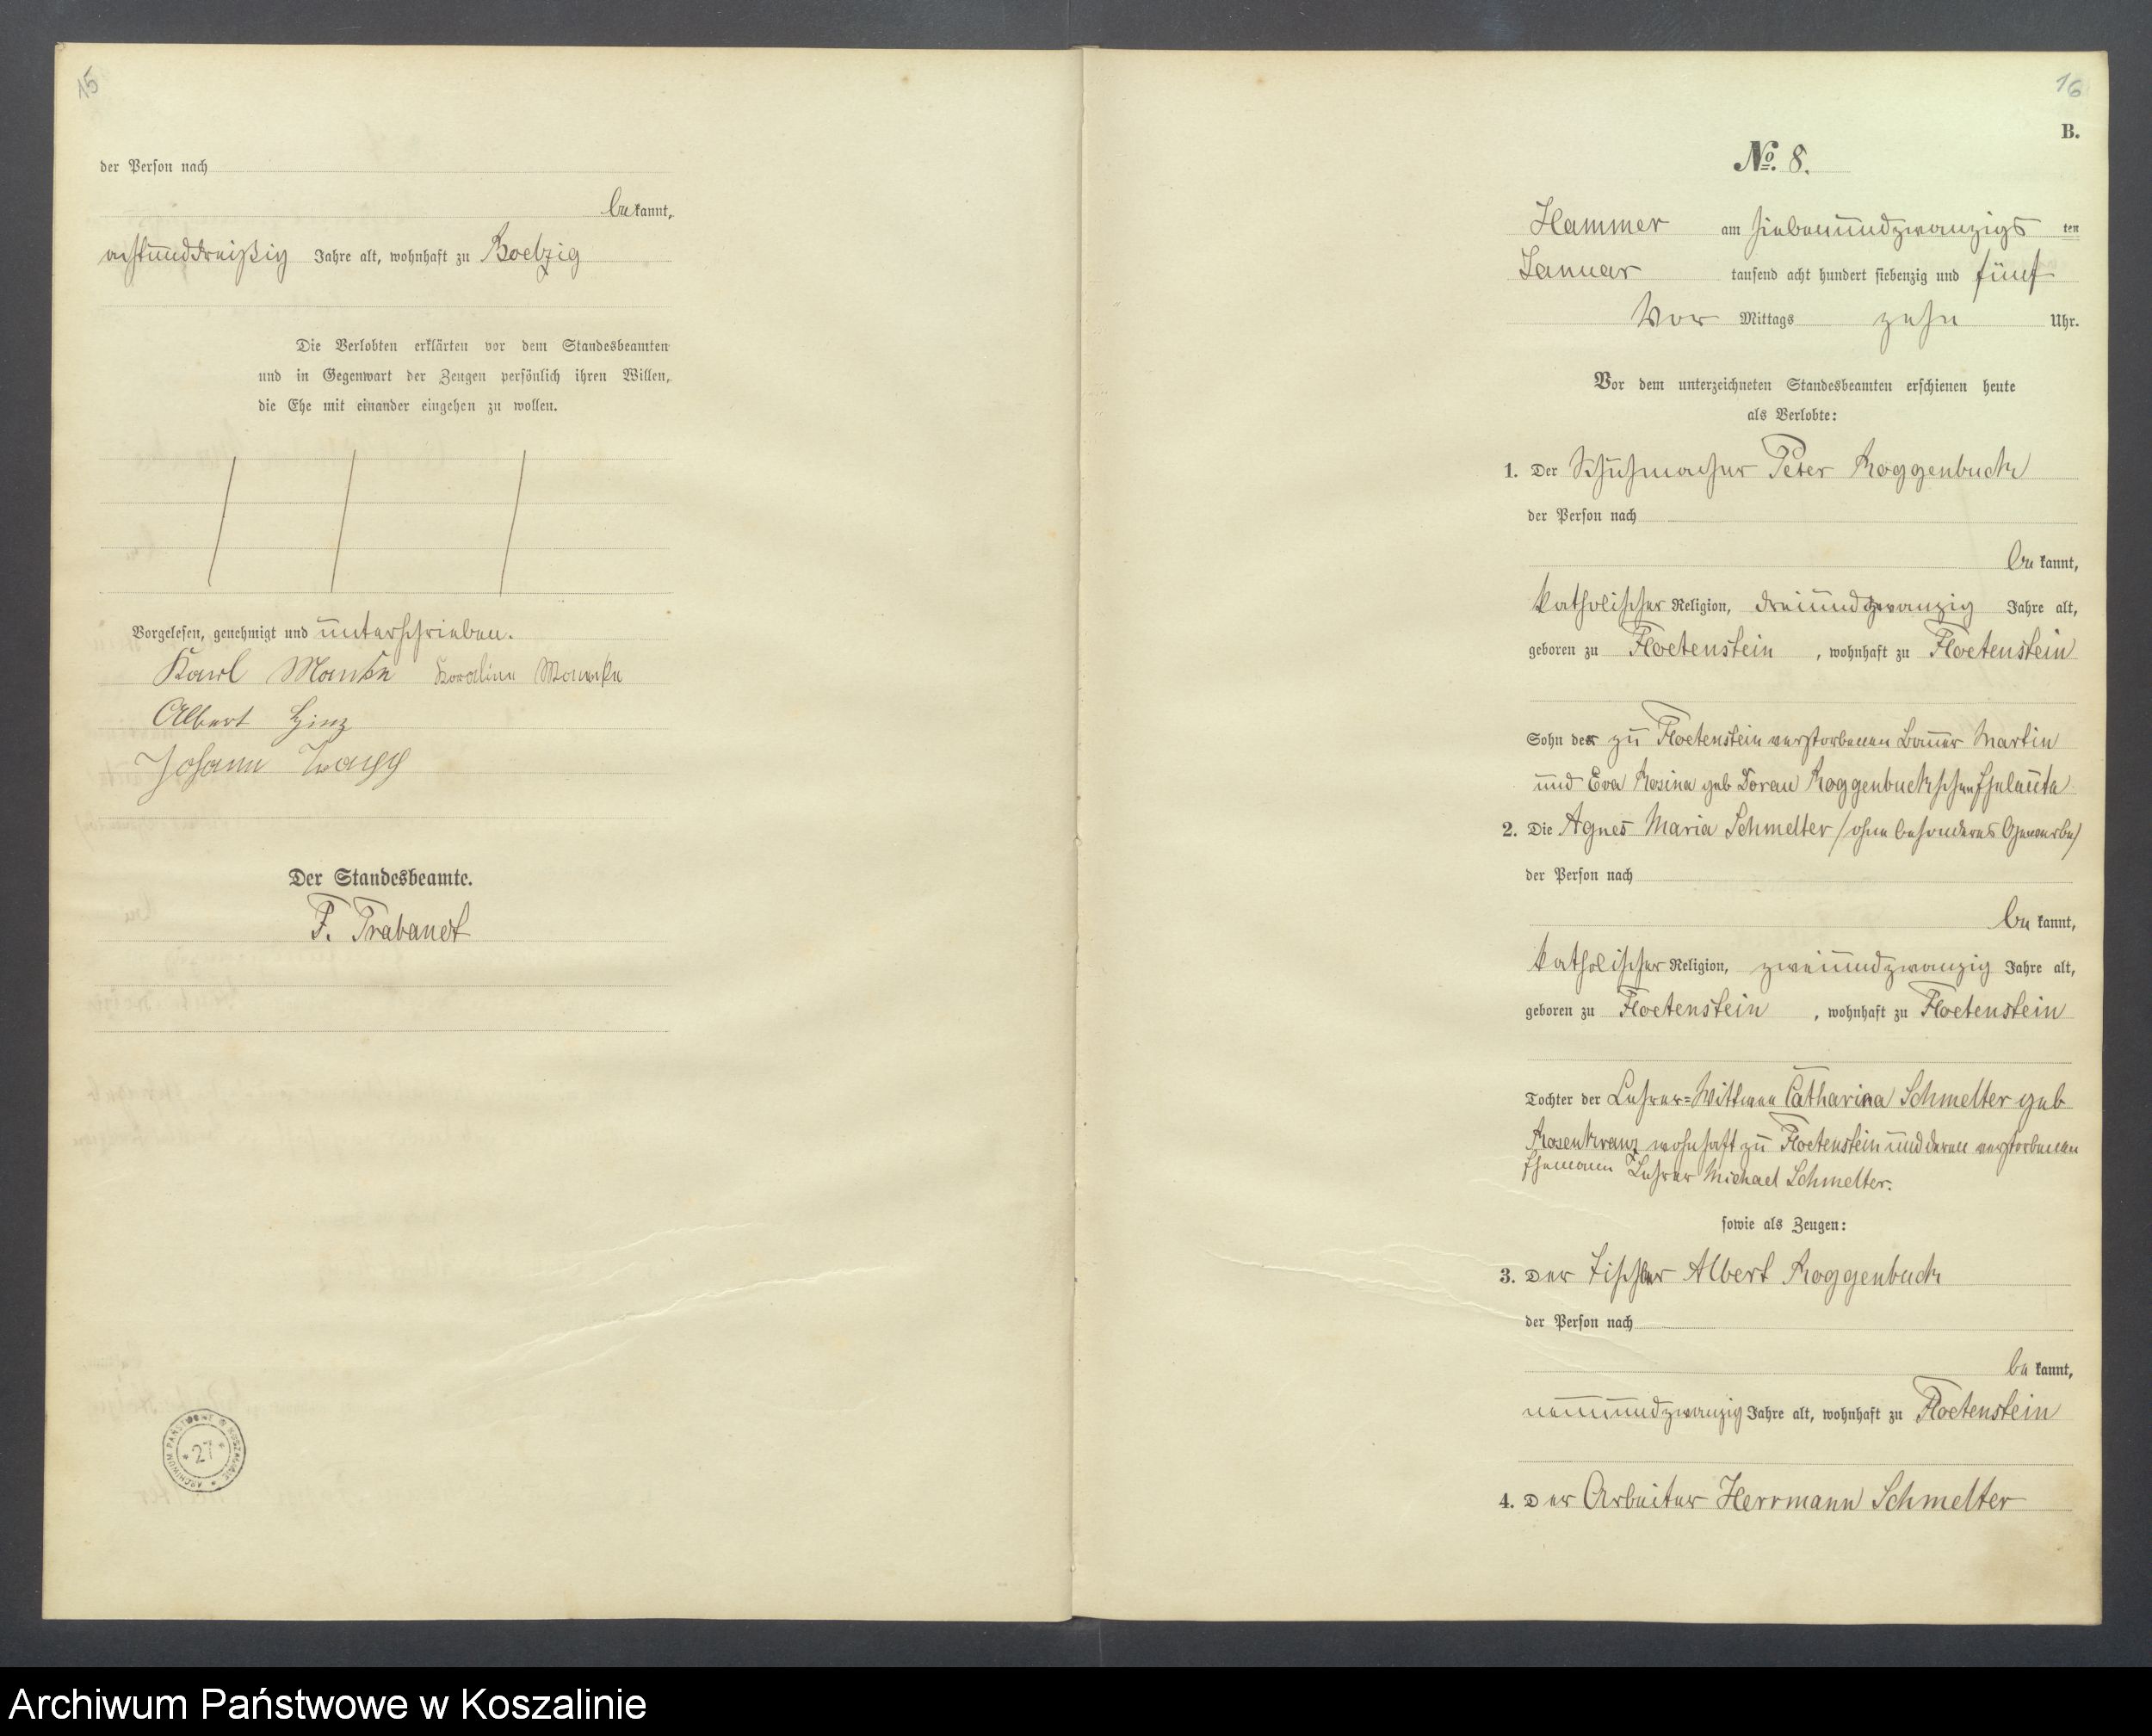 15
der Person nach
bekannt,
achtunddreißig Jahre alt, wohnhaft zu Boetzig
Die Verlobten erklärten vor dem Standesbeamten
und in Gegenwart der Zeugen persönlich ihren Willen,
die Ehe mit einander eingehen zu wollen.
Vorgelesen, genehmigt und unterschrieben.
Karl Manke Karoline Manke
Albert Hinz
Johann
Der Standesbeamte.
F. Trabandt
ARCHIWUM PAŃSTWOWE W KOSZALINIE
* 27 *
16
B.
No. 8.
Hammer am siebenundzwanzigsten
Januar tausend acht hundert siebenzig und fünf
Vor Mittags zehn Uhr.
Vor dem unterzeichneten Standesbeamten erschienen heute
als Verlobte:
1. Der Schuhmacher Peter Roggenbuck
der Person nach
be kannt,
katholischer Religion, dreiundzwanzig Jahre alt,
geboren zu Floetenstein, wohnhaft zu Floetenstein
Sohn der zu Floetenstein verstorbenen Bauer Martin
und Eva Rosina geb Doran Roggenbuckschen Eheleute
2. Die Agnes Maria Schmelter /ohne besonderes Gewerbe/
der Person nach
be kannt,
katholischer Religion, zweiundzwanzig Jahre alt,
geboren zu Floetenstein, wohnhaft zu Floetenstein
Tochter der Lehrer=Wittwee Catharina Schmelter geb
Rosenkranz wohnhaft zu Floetenstein und deren verstorbenen
Ehemann Lehrer Michael Schmelter.
sowie als Zeugen:
3. Der Tischler Albert Roggenbuck
der Person nach
be kannt,
neunundzwanzig Jahre alt, wohnhaft zu Floetenstein
4. Der Arbeiter Herrmann Schmelter
Archiwum Państwowe w Koszalinie